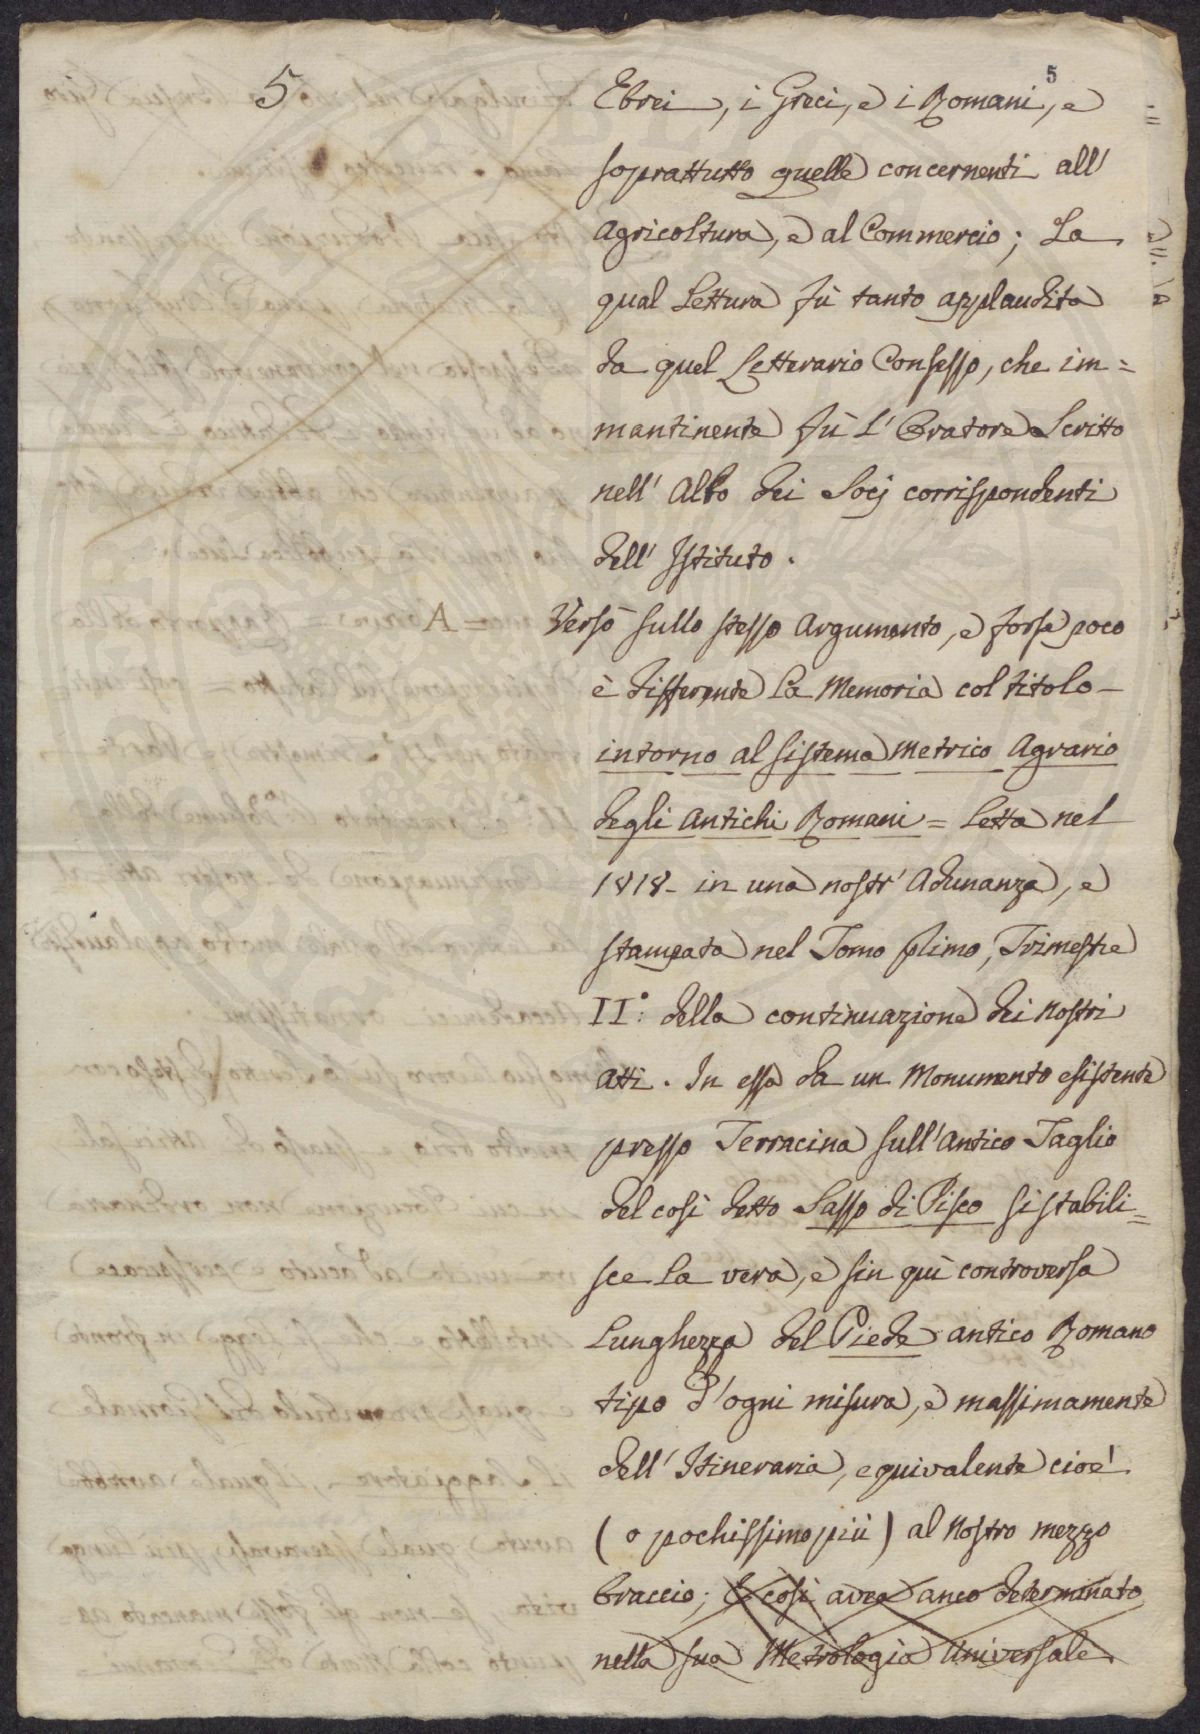 5
5
Ebrei, i Greci, e i Romani, e
soprattutto quelle concernenti all'
Agricoltura, e al Commercio; La
qual Lettura fù tanto applaudita
da quel Letterario Consesso, che im=
mantinente fù L'Oratore Scritto
nell' Albo dei Socj corrispondenti
dell' Istituto.
A = Versò sullo stesso Argumento, e forse poco
è differente La Memoria col titolo –
intorno al sistema Metrico Agrario
degli Antichi Romani = Letta nel
1818 - in una nostr' Adunanza, e
stampata nel Tomo primo, Trimestre
II.° della continuazione dei Nostri
Atti. In essa da un Monumento esistente
presso Terracina sull'antico Taglio
del così detto Sasso di Pisco si stabili=
sce La vera, e sin quì controversa
Lunghezza del Piede antico Romano
tipo d'ogni misura, e massimamente
dell' Itineraria, equivalente cioè
(o pochissimo più) al Nostro mezzo
braccio; E così avea anco determinato
nella sua Metrologia Universale.